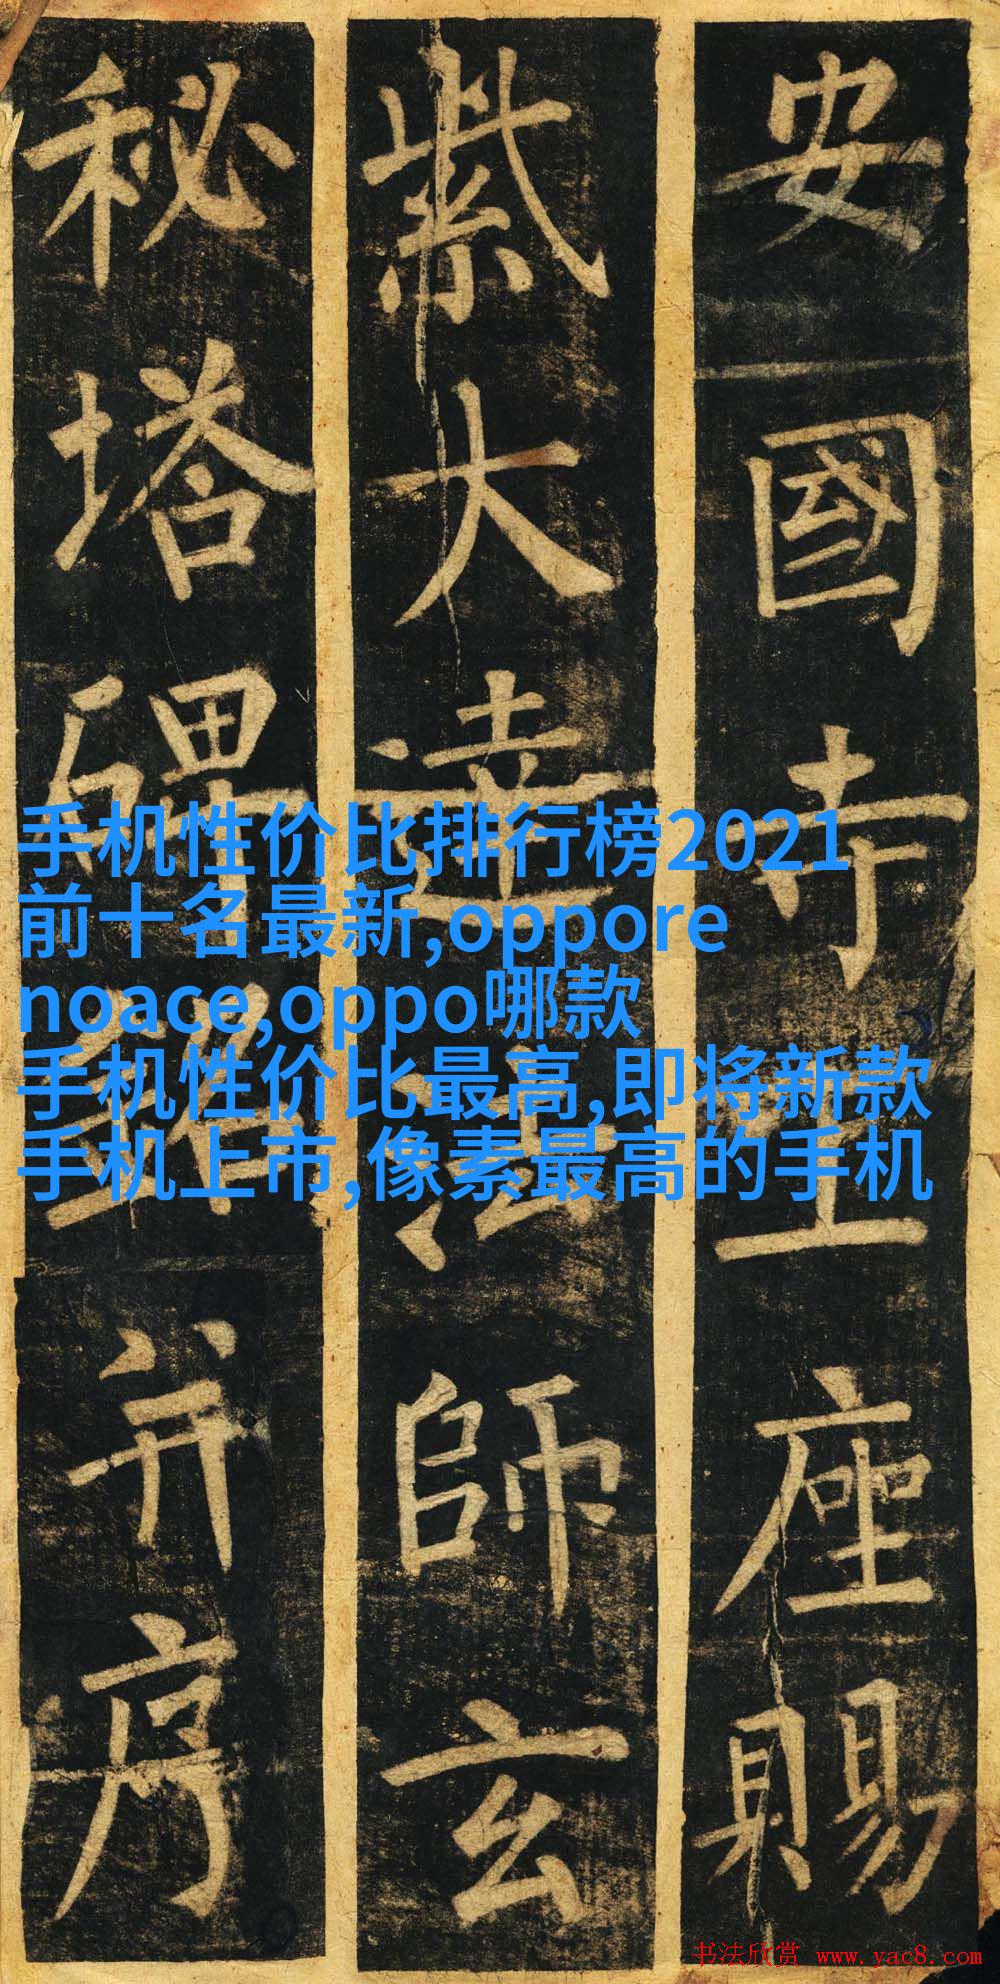 安國寺上座賜
紫大達法師玄
秘塔碑銘并序
手机性价比排行榜2021
前十名最新,oppore
noace,oppo哪款
手机性价比最高,即将新款
手机上市,像素最高的手机
书法欣赏 www.yac8.com